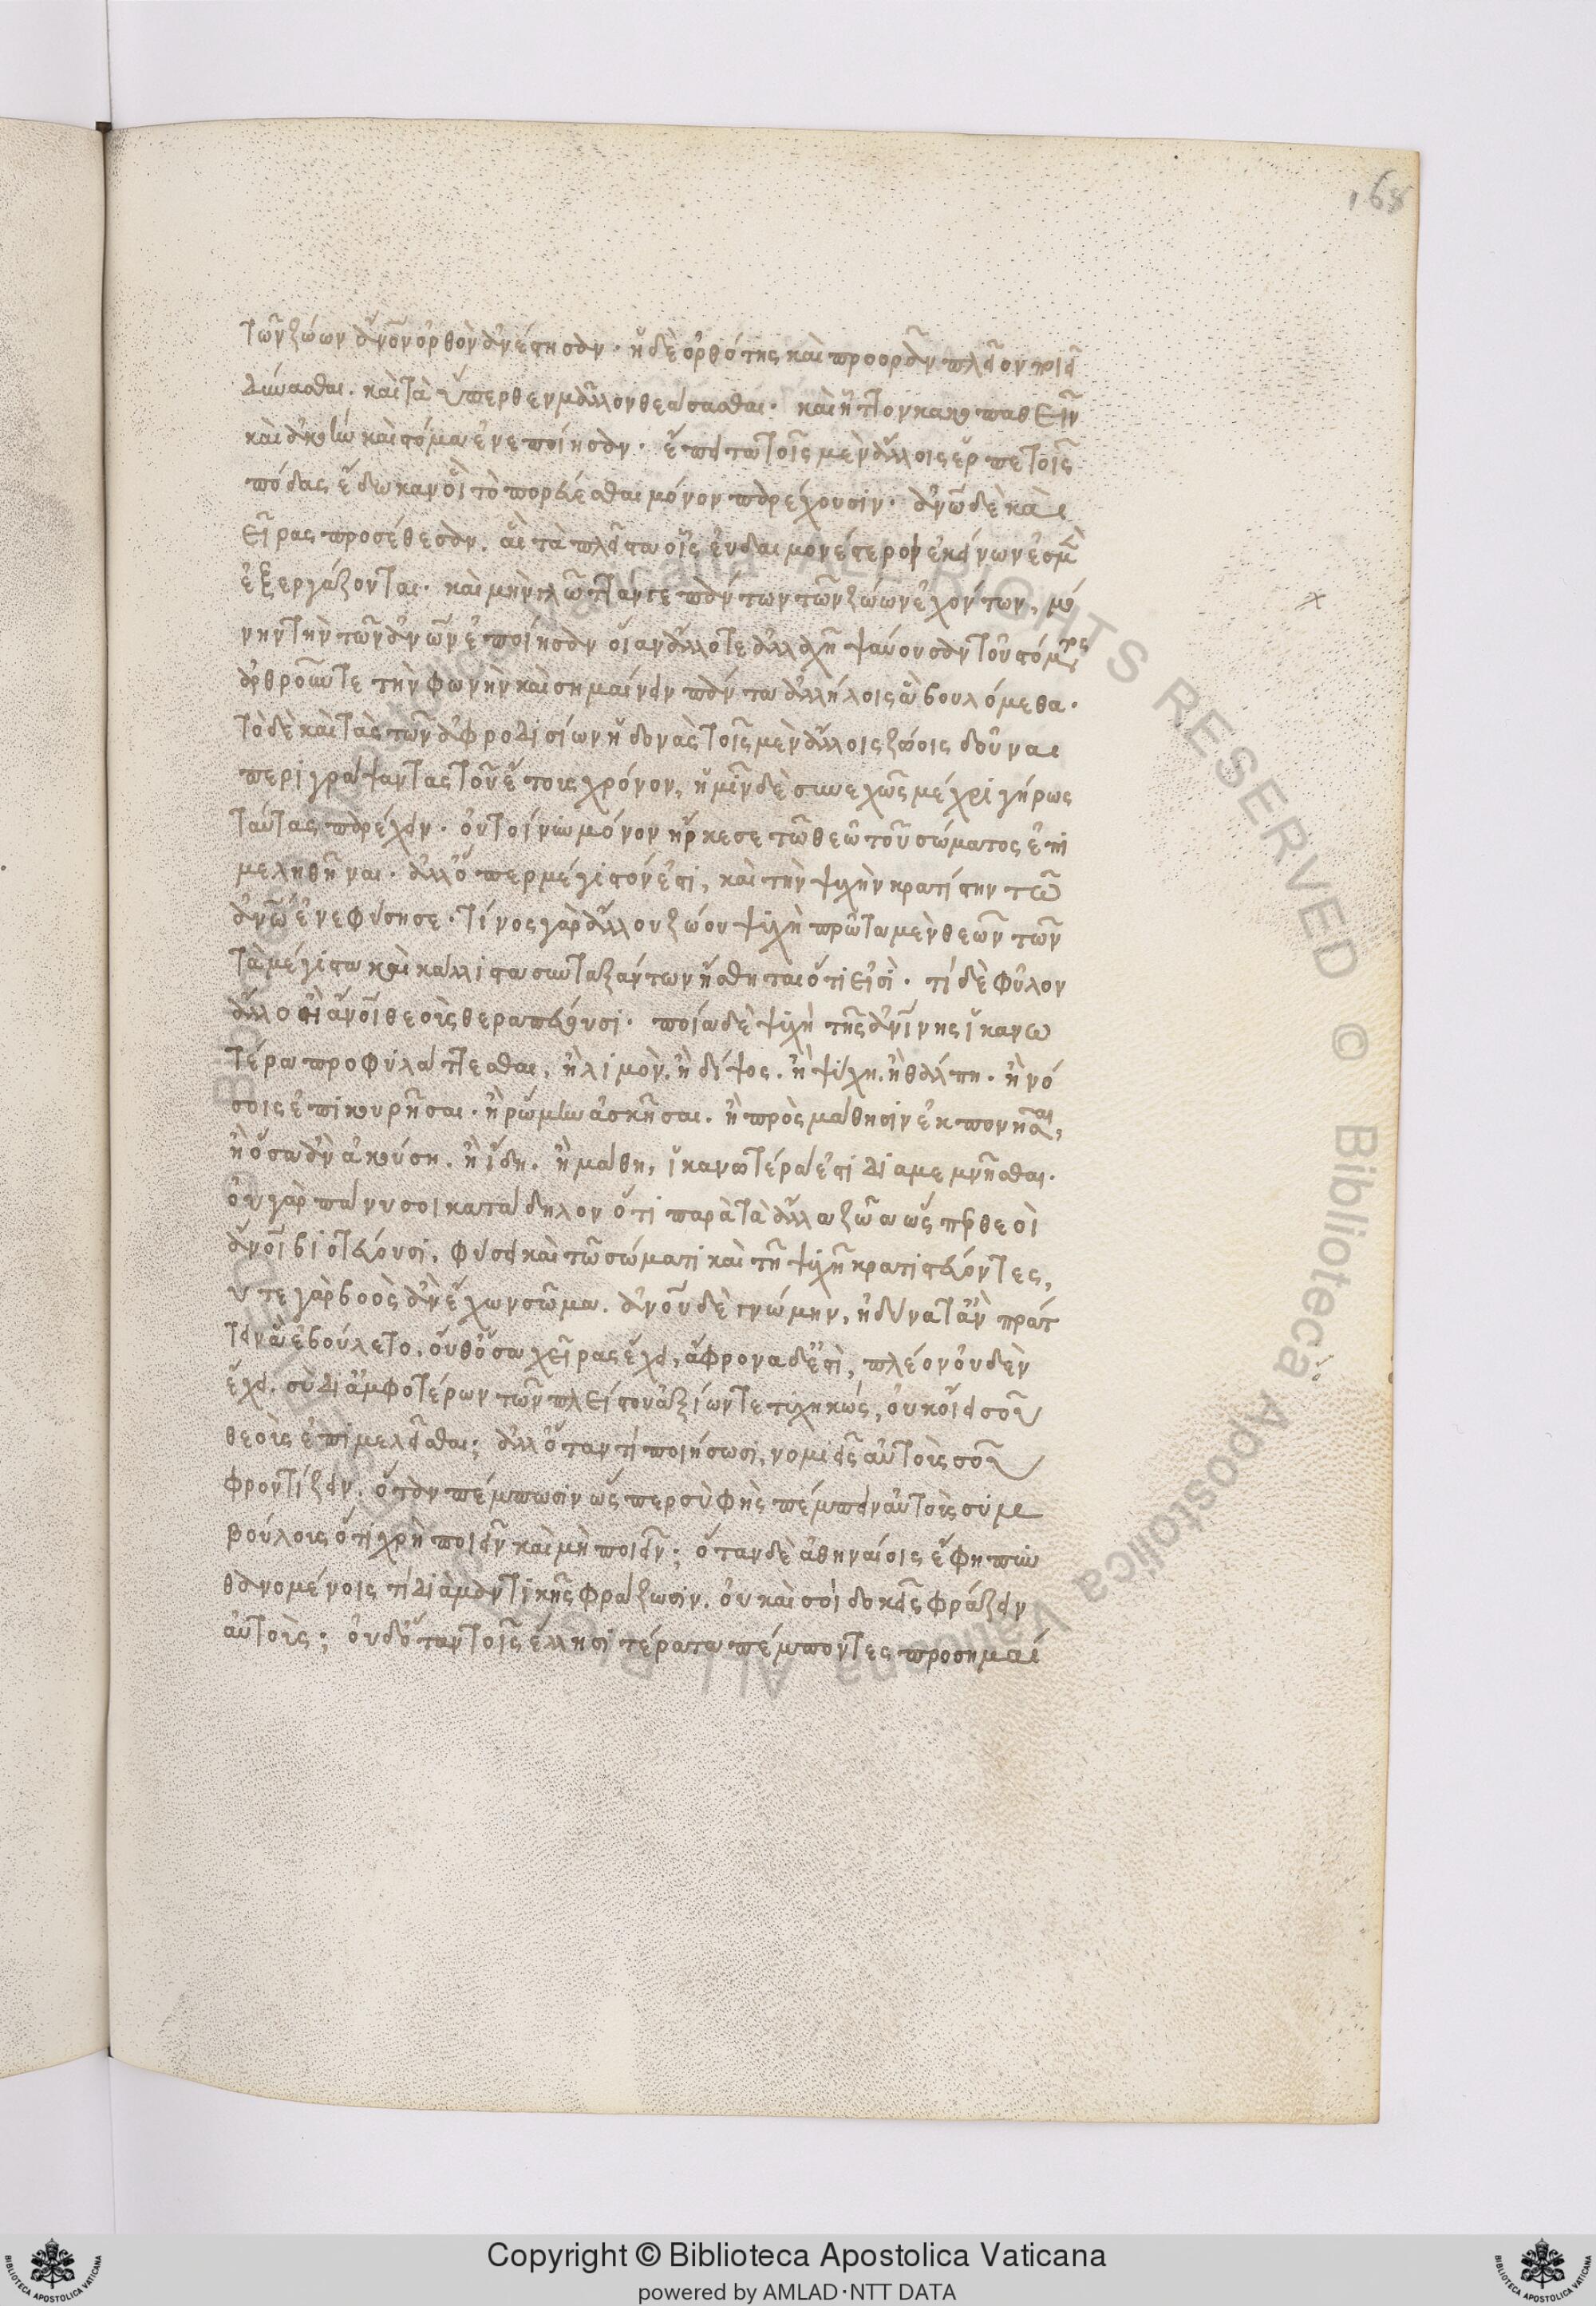 168
τῶν ζώων ἄνον ὀρθὸν ἀνέστησαν· ἡ δὲ ὀρθότης καὶ προορᾶν πλεῖον ποιεῖ
δύνασθαι. καὶ τὰ ὕπερθεν μᾶλλον θεάσασθαι· καὶ ἧττον κακοπαθεῖν
καὶ ἀκοὴν καὶ στόμα ἐνεποίησαν· ἔπειτα τοῖς μὲν ἄλλοις ἑρπετοῖς
πόδας ἔδωκαν οἳ τὸ πορεύεσθαι μόνον παρέχουσιν· ἀνω δὲ καὶ
εῖρας προσέθεσαν. αἳ τὰ πλεῖστα οἷς εὐδαιμονέστεροι ἐκείνων ἐσμὲν
ἐξεργάζονται· καὶ μὴν γλῶτταν τε πάντων τῶν ζώων ἐχόντων, μό
νην τὴν τῶν ἀνων ἐποίησαν οἵαν ἄλλοτε ἀλλαχῆ ψαύουσαν τοῦ στόματος
ἀρθροῦν τε τὴν φωνὴν καὶ σημαίνειν πάντα ἀλλήλοις ἃ βουλόμεθα·
τὸ δὲ καὶ τὰς τῶν ἀφροδισίων ἡδονὰς τοῖς μὲν ἄλλοις ζώοις δοῦναι
περιγράψαντας τοῦ ἔτους χρόνον, ἡμῖν δὲ συνεχῶς μέχρι γήρως
ταύτας παρέχειν· οὐ τοίνυν μόνον ἤρκεσε τῶ θεῶ τοῦ σώματος ἐπι
μεληθῆναι· ἀλλ' ὅπερ μέγιστόν ἐστι, καὶ τὴν ψυχὴν κρατίστην τῶ
ἀνω ἐνεφύσησε· τίνος γὰρ ἄλλου ζώου ψυχὴ πρῶτα μὲν θεῶν τῶν
τὰ μέγιστα καὶ κάλλιστα συνταξάντων ἤσθηται ὅτι εἰσὶ· τί δὲ φῦλον
ἄλλο ἢ ἄνοι θεοὺς θεραπεύουσι· ποία δὲ ψυχὴ τῆς ἀνίνης ἱκανω
τέρα προφυλάττεσθαι, ἢ λιμὸν. ἢ δίψος. ἢ ψύχη. ἢ θάλπη. ἢ νό
σοις ἐπικουρῆσαι· ἢ ῥώμην ἀσκῆσαι. ἢ πρὸς μάθησιν ἐκπονῆσαι,
ἢ ὅσα ἂν ἀκούση. ἢ ἴδη. ἢ μάθη, ἱκανωτέρα ἐστὶ διαμεμνῆσθαι.
οὐ γὰρ πάνυ σοι κατάδηλον ὅτι παρὰ τὰ ἄλλα ζῶα ὥσπερ θεοὶ
ἄνοι βιοτεύουσι, φύσει καὶ τῶ σώματι καὶ τῆ ψυχῆ κρατιστεύοντες,
ὔτε γὰρ βοὸς ἂν ἔχων σῶμα. ἀνου δὲ γνώμην, ἠδύνατ' ἂν πράτ
τειν ἃ ἐβούλετο. οὔθ' ὅσα χεῖρας ἔχει, ἄφρονα δ' ἐστὶ, πλέον οὐδὲν
ἔχει. σὺ δὶ ἀμφοτέρων τῶν πλείστου ἀξίων τετυχηκώς, οὐκ οἴει σοῦ
θεοὺς ἐπιμελεῖσθαι; ἀλλ' ὅταν τί ποιήσωσι, νομιεῖς αὐτοὺς σοῦ
φροντίζειν. ὅταν πέμπωσιν ὥσπερ σὺ φὴς πέμπειν αὐτοὺς συμ
βούλους ὅτι χρὴ ποιεῖν καὶ μὴ ποιεῖν; ὅταν δὲ ἀθηναίοις ἔφη πυν
θανομένοις τὶ διὰ μαντικῆς φράζωσιν. οὐ καὶ σοὶ δοκεῖς φράζειν
αὐτοὺς; οὐδ' ὅταν τοῖς ἕλλησι τέρατα πέμποντες προσημαί